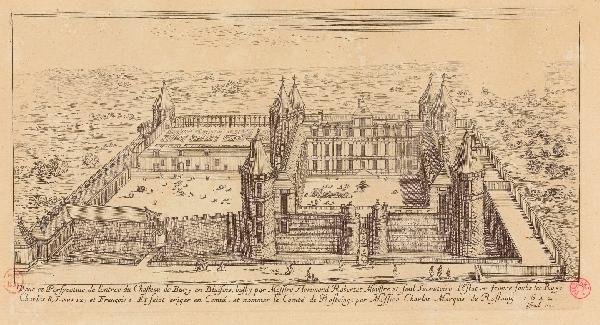 Veue et Perspectiue de l'entree du Chasteau de Bury en Blaisois, basty par Messire Florimond Robertet Ministre et seul Secretaire d'Estat en france soubs les Roys
Charles 8. Louis 12. et François 1. Et faict eriger en Comté, et nommer le Comté de Rostaing, par Messire Charles Marquis de Rostaing 1642